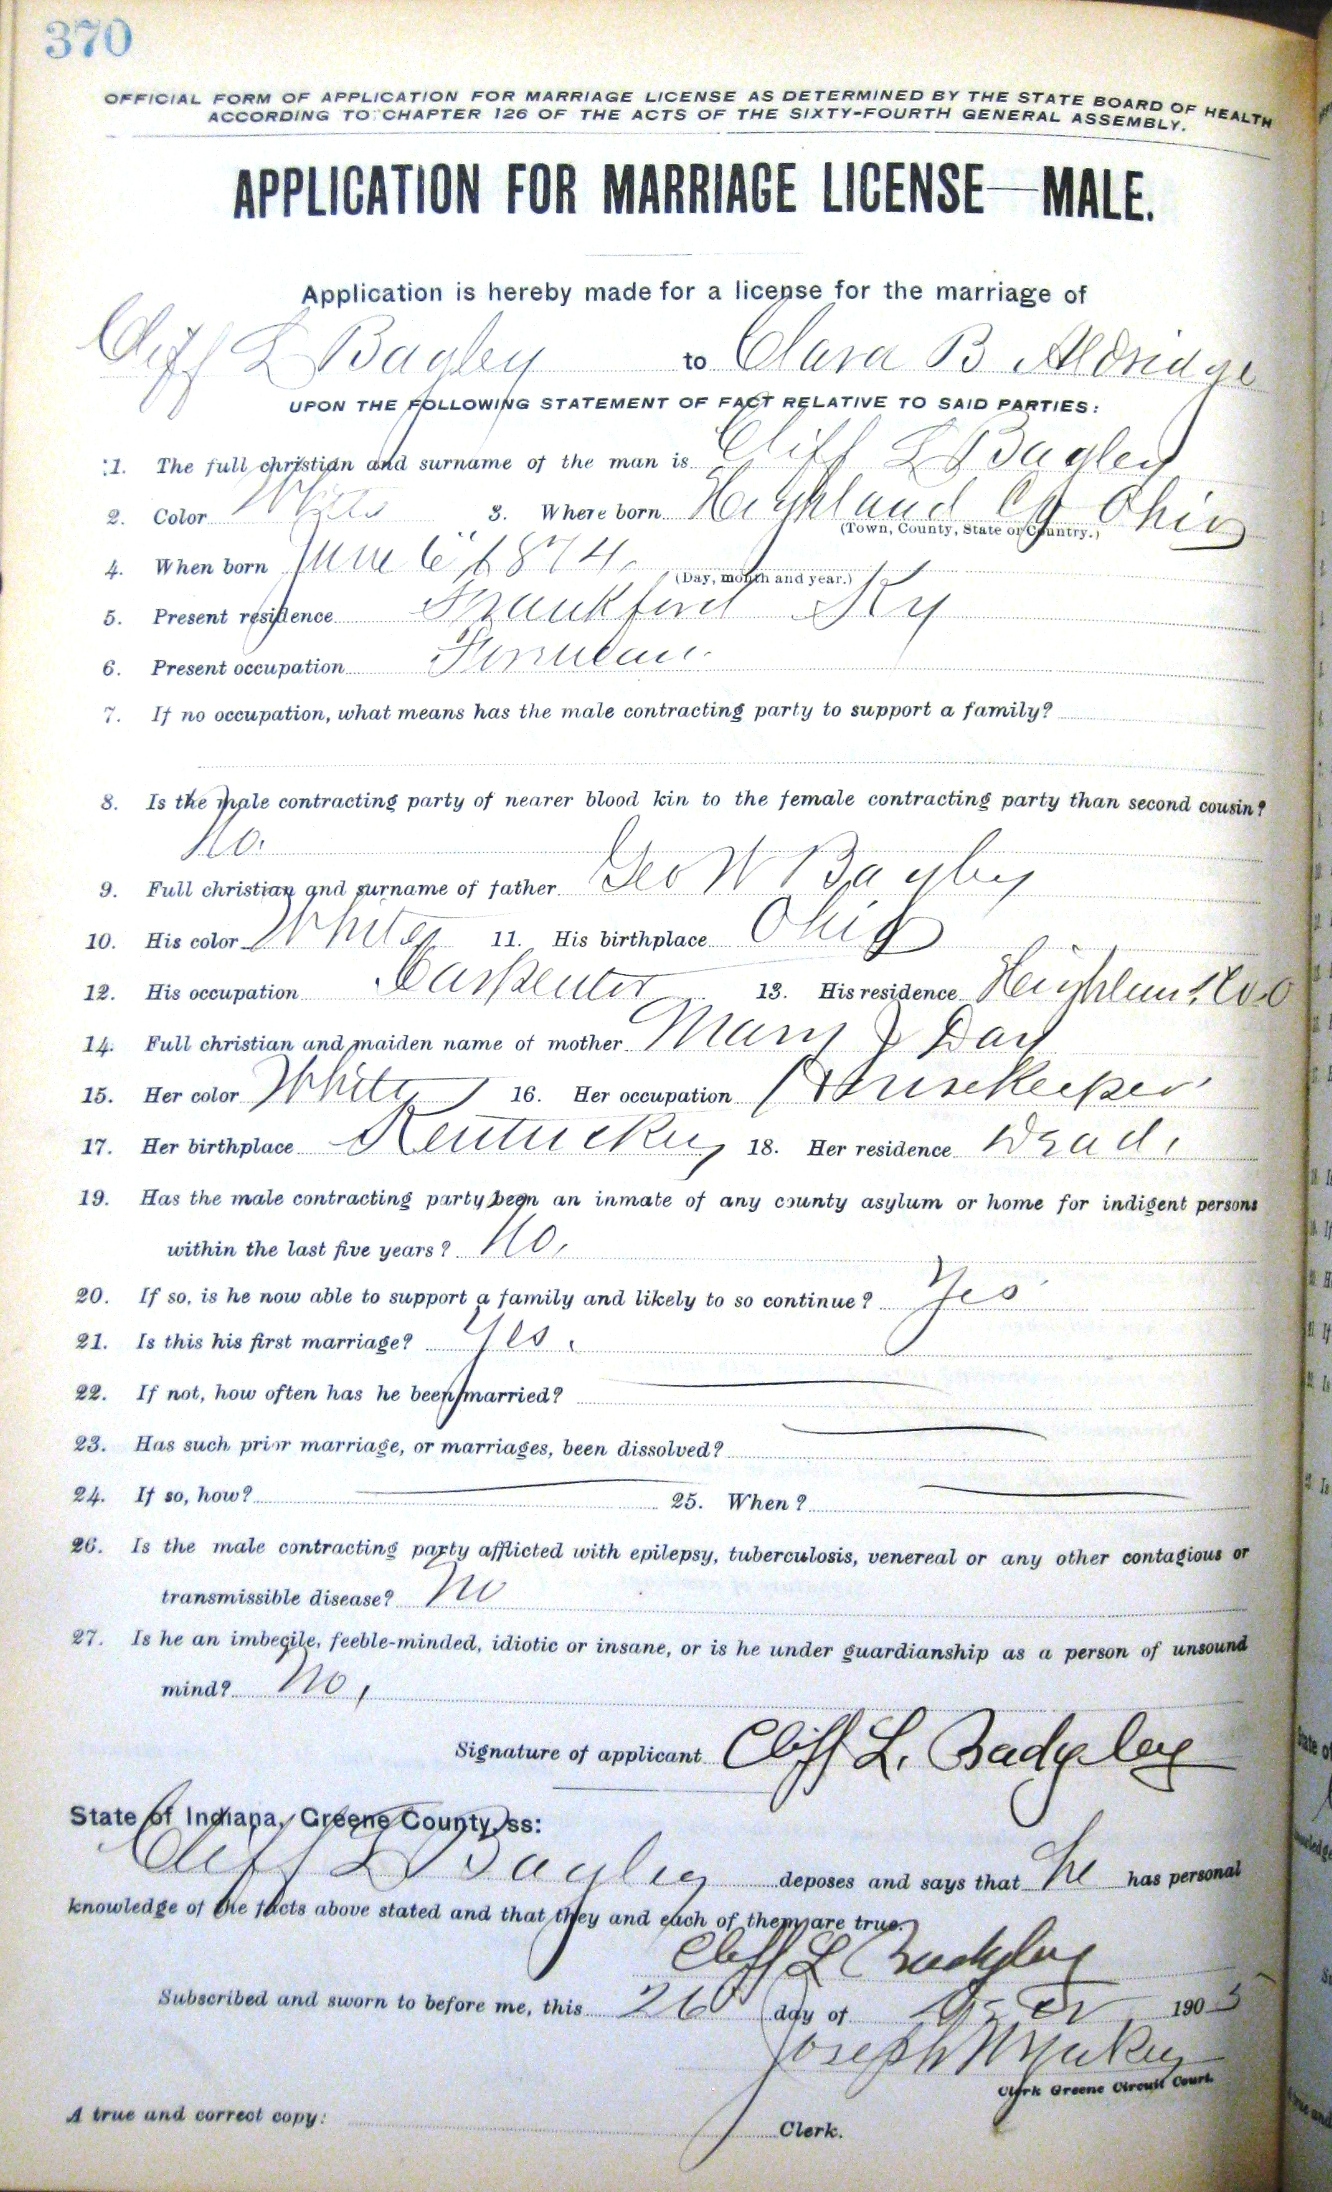 370
OFFICIAL FORM OF APPLICATION FOR MARRIAGE LICENSE AS DETERMINED BY THE STATE BOARD OF HEALTH
ACCORDING TO CHAPTER 126 OF THE ACTS OF THE SIXTY-FOURTH GENERAL ASSEMBLY.
APPLICATION FOR MARRIAGE LICENSE—MALE.
Application is hereby made for a license for the marriage of
Cliff L Bagley to Clara B Aldridge
UPON THE FOLLOWING STATEMENT OF FACT RELATIVE TO SAID PARTIES:
1. The full christian and surname of the man is Cliff L Bagley
2. Color White 3. Where born Highland Co Ohio
(Town, County, State or Country.)
4. When born June 6" 1874.
(Day, month and year.)
5. Present residence Frankford Ky
6. Present occupation Foreman.
7. If no occupation, what means has the male contracting party to support a family?
8. Is the male contracting party of nearer blood kin to the female contracting party than second cousin?
No.
9. Full christian and surname of father Geo W Bagley
10. His color White 11. His birthplace Ohio
12. His occupation Carpenter 13. His residence Highland Co. O
14. Full christian and maiden name of mother Mary J Day
15. Her color White 16. Her occupation Housekeeper
17. Her birthplace Kentucky 18. Her residence Dead.
19. Has the male contracting party been an inmate of any county asylum or home for indigent persons
within the last five years? No.
20. If so, is he now able to support a family and likely to so continue? Yes
21. Is this his first marriage? Yes.
22. If not, how often has he been married?
23. Has such prior marriage, or marriages, been dissolved?
24. If so, how? 25. When?
26. Is the male contracting party afflicted with epilepsy, tuberculosis, venereal or any other contagious or
transmissible disease? No
27. Is he an imbecile, feeble-minded, idiotic or insane, or is he under guardianship as a person of unsound
mind? No.
Signature of applicant Cliff L. Badgley
State of Indiana, Greene County, ss:
Cliff L Bagley deposes and says that he has personal
knowledge of the facts above stated and that they and each of them are true.
Cliff L Badgley
Subscribed and sworn to before me, this 26 day of 1905
Joseph W
Clerk Greene Circuit Court.
A true and correct copy: Clerk.